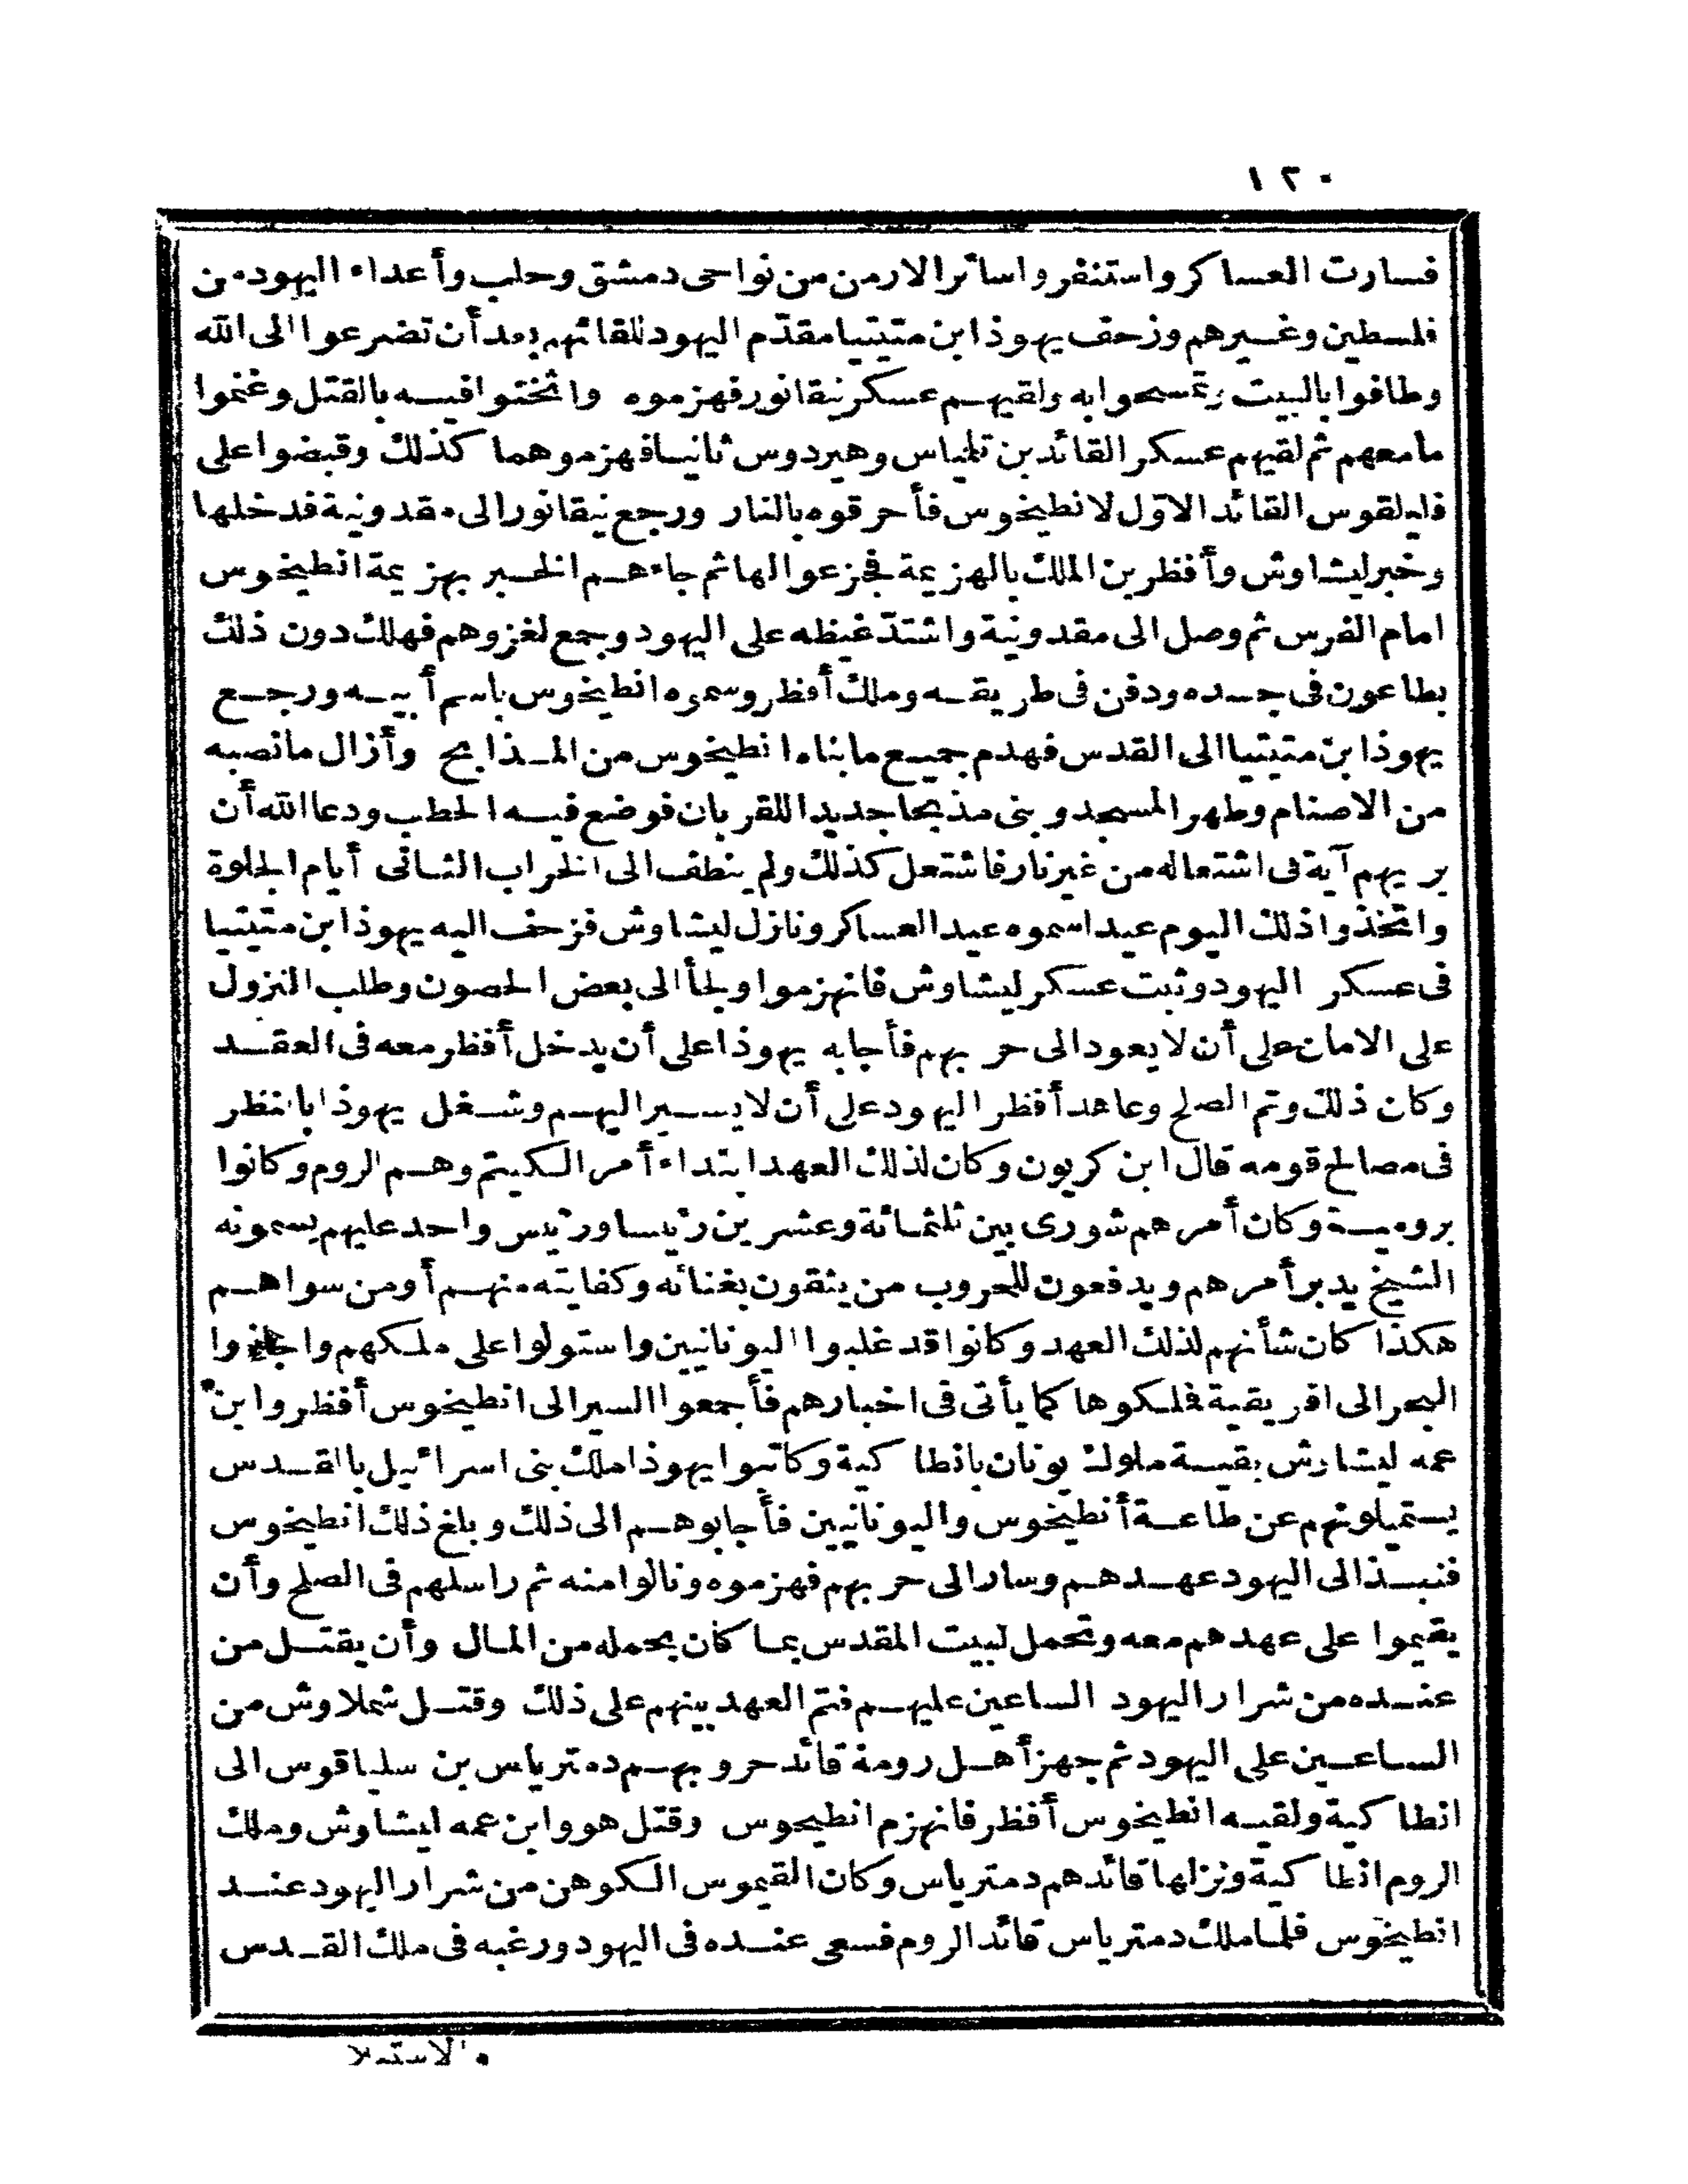 ١٢٠
فسارت العساكر واستنفروا سائر الارمن من نواحى دمشق وحلب وأعداء اليهود من
فلسطين وغيرهم وزحف يهوذا بن متيتيا مقدّم اليهود للقائهم بعد أن تضرعوا الى الله
وطافوا بالبيت وتمسحوا به ولقيهم عسكر نيقانور فهزموه واثخنوا فيه بالقتل وغنموا
ما معهم ثم لقيهم عسكر القائد بن تلمياس وهيردوس ثانيا فهزموهما كذلك وقبضوا على
فليلقوس القائد الاوّل لانطيخوس فأحرقوه بالنار ورجع نيقانور الى مقدونية فدخلها
وخبر ليشاوش وأفظر بن الملك بالهزيمة فجزعوا لها ثم جاءهم الخبر بهزيمة انطيخوس
امام الفرس ثم وصل الى مقدونية واشتدّ غيظه على اليهود وجمع لغزوهم فهلك دون ذلك
بطاعون فى جسده ودفن فى طريقه وملك أفظر وسموه انطيخوس باسم أبيه ورجع
يهوذا بن متيتيا الى القدس فهدم جميع ما بناه انطيخوس من المذابح وأزال ما نصبه
من الاصنام وطهر المسجد وبنى مذبحا جديدا للقربان فوضع فيه الحطب ودعا الله أن
يريهم آية فى اشتعاله من غير نار فاشتعل كذلك ولم ينطف الى الخراب الثانى أيام الجلوة
واتخذوا ذلك اليوم عيدا سموه عيد العساكر ونازل ليشاوش فزحف اليه يهوذا بن متيتيا
فى عسكر اليهود وثبت عسكر ليشاوش فانهزموا ولجأ الى بعض الحصون وطلب النزول
على الامان على أن لا يعود الى حربهم فأجابه يهوذا على أن يدخل أفظر معه فى العقد
وكان ذلك وتم الصلح وعاهد أفظر اليهود على أن لا يسير اليهم وشغل يهوذا بالنظر
فى مصالح قومه قال ابن كريون وكان لذلك العهد ابتداء أمر الكيتم وهم الروم وكانوا
برومية وكان أمرهم شورى بين ثلثمائة وعشرين رئيسا ورئيس واحد عليهم يسمونه
الشيخ يدبر أمرهم ويدفعون للحروب من يثقون بغنائه وكفايته منهم أو من سواهم
هكذا كان شأنهم لذلك العهد وكانوا قد غلبوا اليونانيين واستولوا على ملكهم واجازوا
البحر الى افريقية فملكوها كما يأتى فى اخبارهم فأجمعوا السير الى انطيخوس أفظر وابن
عمه ليشاوش بقية ملوك يونان بانطاكية وكاتبوا يهوذا ملك بنى اسرائيل بالقدس
يستميلونهم عن طاعة أنطيخوس واليونانيين فأجابوهم الى ذلك وبلغ ذلك انطيخوس
فنبذ الى اليهود عهدهم وسار الى حربهم فهزموه ونالوا منه ثم راسلهم فى الصلح وأن
يقيموا على عهدهم معه وتحمل لبيت المقدس بما كان يحمله من المال وأن يقتل من
عنده من شرار اليهود الساعين عليهم فتم العهد بينهم على ذلك وقتل شملاوش من
الساعين على اليهود ثم جهز أهل رومة قائد حروبهم دمترياس بن سلياقوس الى
انطاكية ولقيه انطيخوس أفظر فانهزم انطيخوس وقتل هو وابن عمه ليشاوش وملك
الروم انطاكية ونزلها قائدهم دمترياس وكان القيموس الكوهن من شرار اليهود عند
انطيخوس فلما ملك دمترياس قائد الروم فسعى عنده فى اليهود ورغبه فى ملك القدس